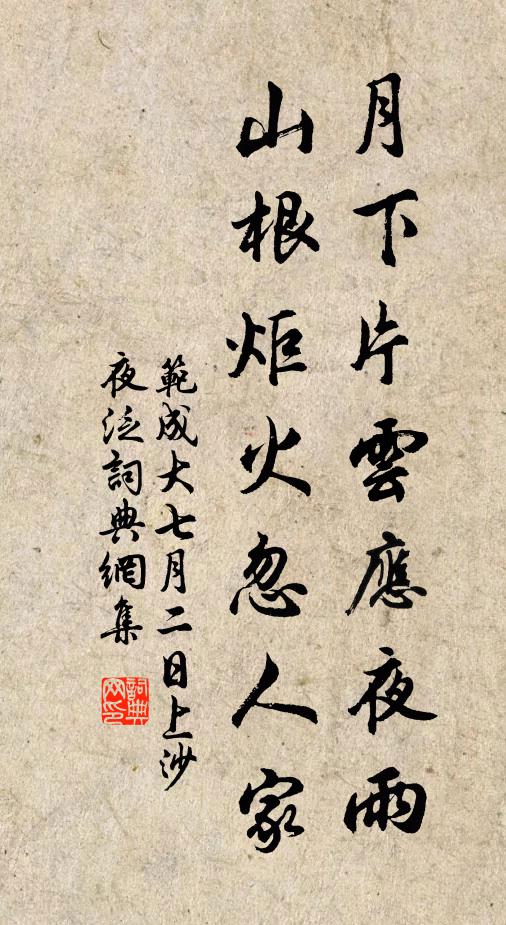 月下片雲應夜雨
山根炬火忽人家
範成大七月二日上沙
夜泛詞典網集
詞典網印